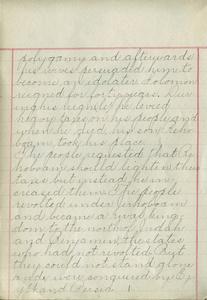 polygamy and afterwards
his wives persuaded him to
become an idolater. Solomon
reigned for forty years. Dur
ing his reign he levied
heavy taxes on his people and
when he died his son Reho
boam took his place.
The people requested that
hoboam should lighten their
taxes but instead, he in
creased them. The people
revolted under Jeroboam
and became a rival king
dom to the north. Judah
and Benjamin the states
who had not revolted. But
they could not stand alone
and were conquered by
and Persia